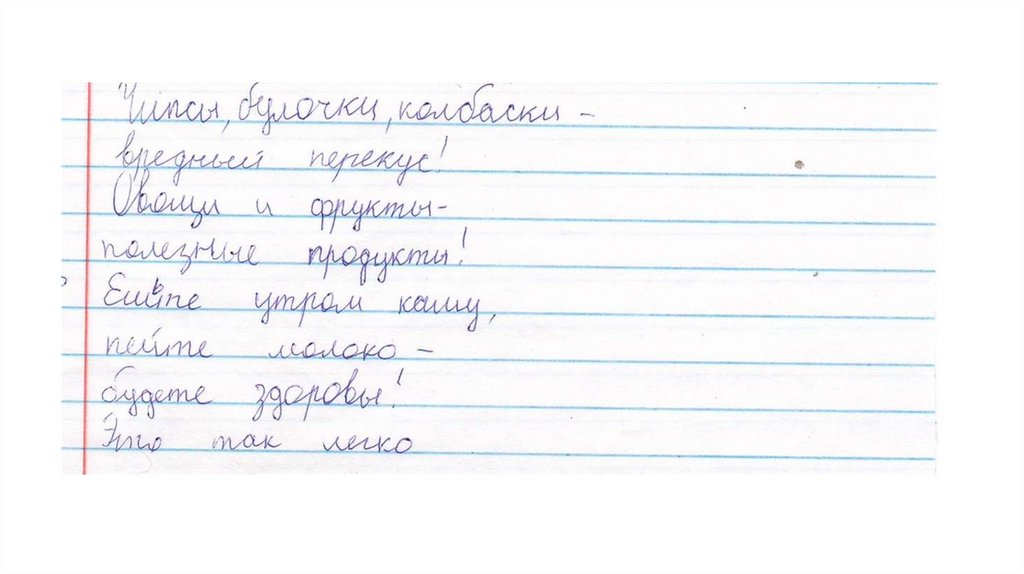 Чипсы, булочки, колбаски –
вредный перекус!
Овощи и фрукты–
полезные продукты!
Ешьте утром кашу,
пейте молоко –
будете здоровы!
Это так легко